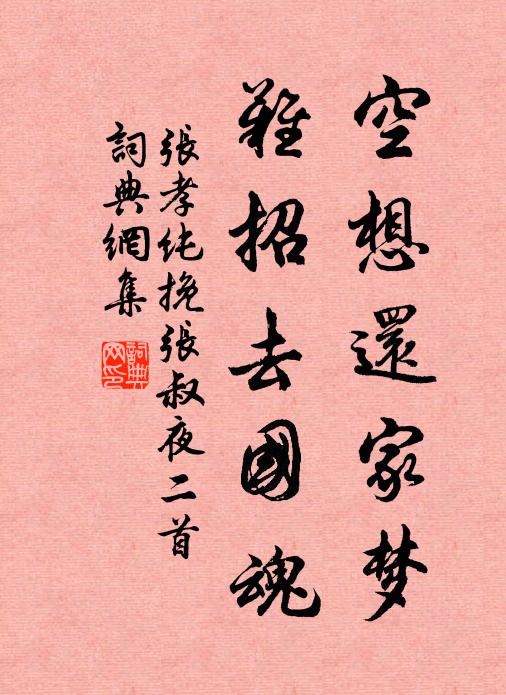 空想還家梦
難招去國魂
張孝纯挽張叔夜二首
詞典網集
詞典網印